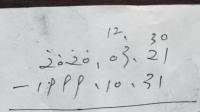 12. 30
2020. 03. 21
- 1999. 10. 31